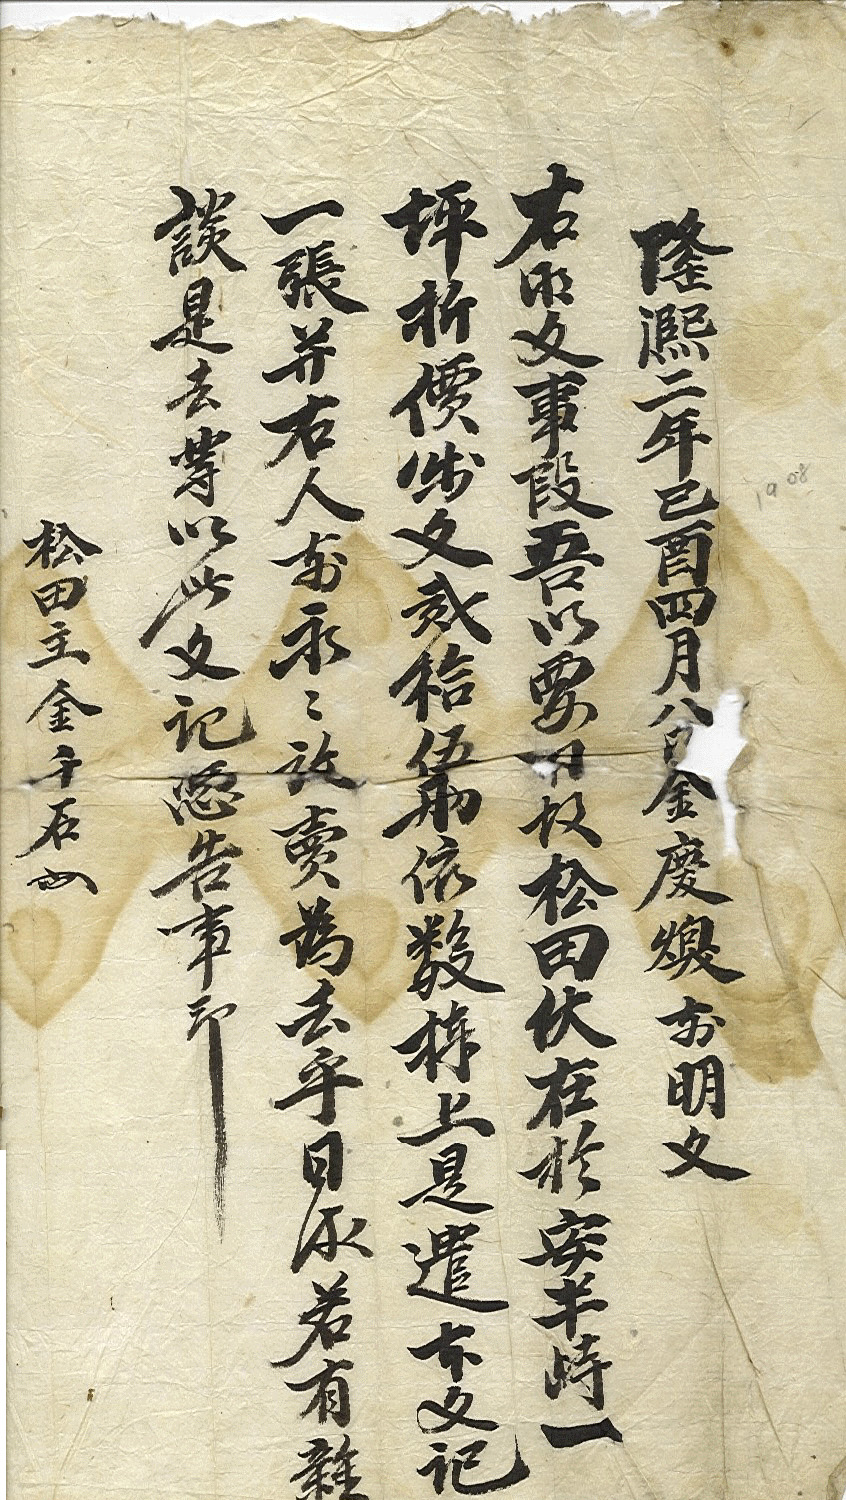 隆熙二年己酉四月八日金慶煥前明文
右明文事段吾以要用故松田伏在於安半峙一
坪折價錢文貳拾伍兩依數捧上是遣本文記
一張并右人前永〻放賣為去乎日後若有雜
談是去等以此文記憑告事印
松田主金千石
1908